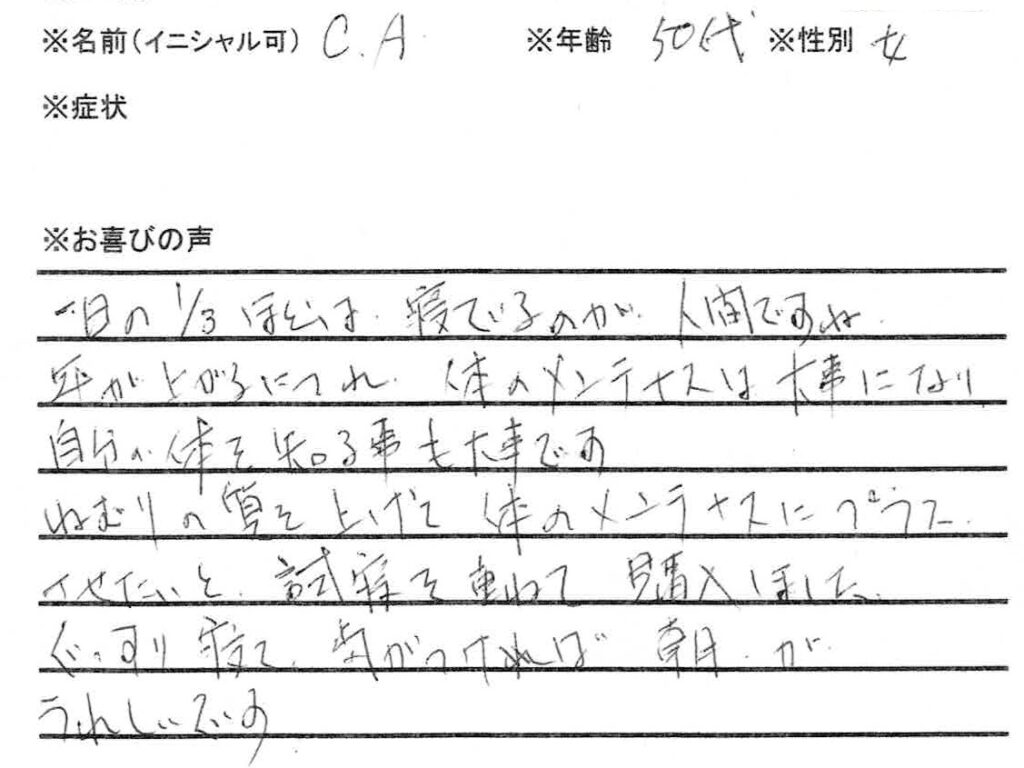 ※名前(イニシャル可) C.A ※年齢 50代 ※性別 女
※症状
※お喜びの声
一日の1/3ほどは、寝ているのが、人間ですね。
年が上がるにつれ、体のメンテナスは大事になり
自分の体を知る事も大事です
ねむりの質を上げて体のメンテナスにプラス
させたいと、試寝を重ねて購入しました。
ぐっすり寝て、気がつければ朝、が
うれしいです